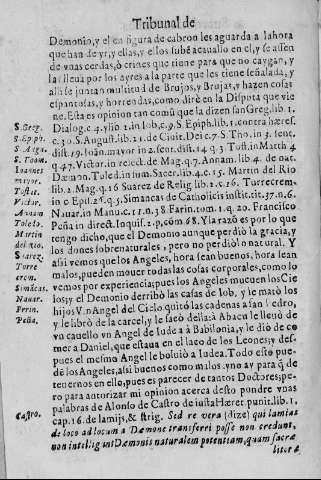 Tribunal de
Demonio, y el en figura de cabron les aguarda a la hora
que han de yr, y ellas, y ellos subē acauallo en el, y se assen
de vnas cerdas, ò crines que tiene para que no caygan, y
las lleua por los ayres a la parte que les tiene señalada, y
alli se juntan multitud de Brujos, y Brujas, y hazen cosas
espantosas, y horrendas, como dirè en la Disputa que vie
ne. Esta es opinion tan comū que la dizen san Greg. lib. 1.
S. Greg.
Dialog. c. 4. y lib. 1. in Iob, c. 9. S. Epiph. lib. 1. contra hæres.
S. Epiph.
c. 30. S. August. lib. 21. de Ciuit. Dei c. 7. S. Tho. in 3. sent.
S. Augu.
dist. 19. Ioan. mayor in 2. sent. dist. 14 q. 3. Tost. in Matth 4
S. Toom.
q. 47. Victor. in relect. de Mag. q. 7. Annam. lib. 4. de nat.
Ioannes
Dæmon. Toled. in sum. Sacer. lib. 4. c. 15. Martin del Rio
mayor.
lib. 2. Mag. q. 16 Suarez de Relig. lib. 2. c. 16. Turrecrem.
Tostat.
in c Epis. 26. q. 5. Simancas de Catholicis instit. tit. 37. n. 6.
Victor.
Nauar. in Manu. c. 11. n. 38 Farin. tom. 1. q. 20. Francisco
Anania
Peña in direct. Inquis. 2. p, cōm. 68. Y la razō es por lo que
Toledo.
tengo dicho, que el Demonio aunque perdiò la gracia, y
Martin
los dones sobrenaturales, pero no perdiò lo natural. Y
del Rio.
assi vemos que los Angeles, hora sean buenos, hora sean
Suarez.
malos, pueden mouer todas las cosas corporales, como lo
Torre
vemos por experiencia; pues los Angeles mueuen los Cie
crem.
los; y el Demonio derribò las casas de Iob, y le matò los
Simācas.
hijos Vn Angel del Cielo quitò las cadenas a san Pedro,
Nauar.
y le librò de la carcel, y le sacò della: à Abacu le lleuò de
Frrin.
vn cauello vn Angel de Iudea à Babilonia, y le diò de co
Peña.
mer a Daniel, que estaua en el laco de los Leones; y des-
pues el mesmo Angel le boluiò a Iudea. Todo esto pue-
dē los Angeles, assi buenos como malos. y no ay para q̃ de
tenernos en ello, pues es parecer de tantos Doctores; pe-
ro para autorizar mi opinion acerca desto pondre vnas
palabras de Alonso de Castro de iusta Hæret. punit. lib. 1,
Castro.
cap. 16. de lamijs, & strig. Sed re vera (dize) qui lamias
de loco ad locum a Dæmone transferri posse non credunt,
non intelligunt Dæmonis naturalem potentiam, quam sacræ
literæ